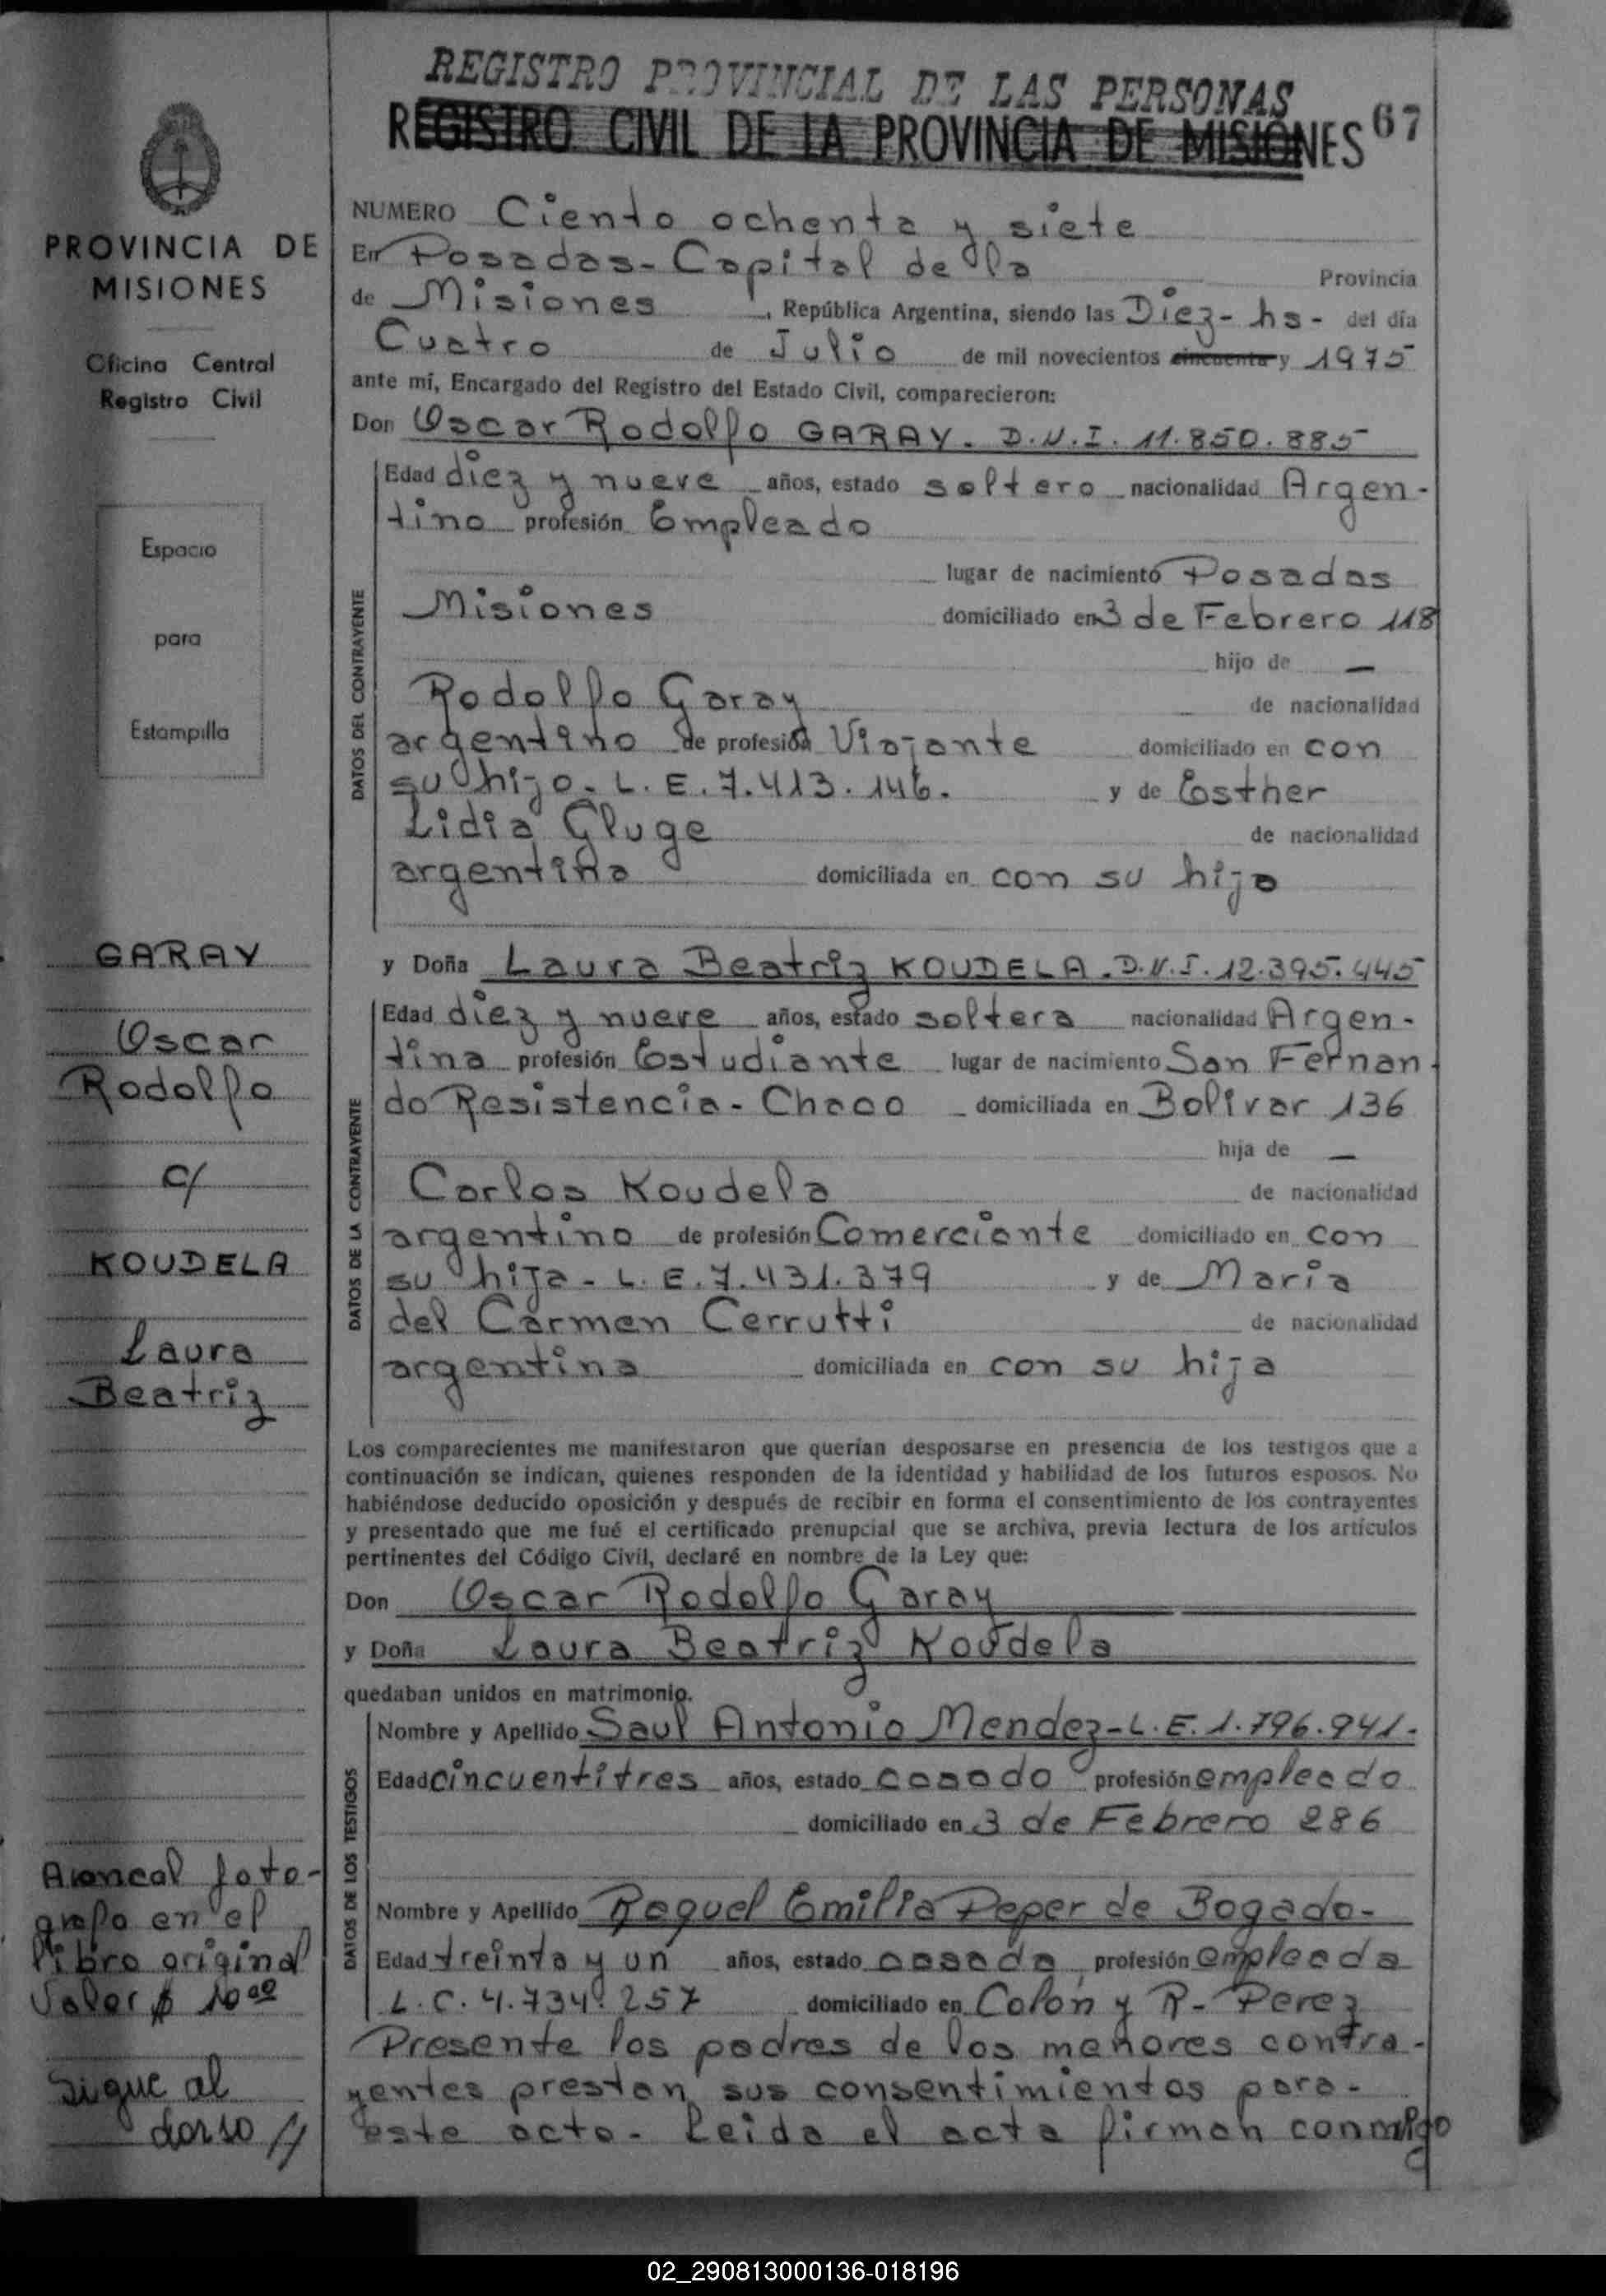 REGISTRO PROVINCIAL DE LAS PERSONAS
REGISTRO CIVIL DE LA PROVINCIA DE MISIONES 67
PROVINCIA DE
MISIONES
Oficina Central
Registro Civil
Espacio
para
Estampilla
GARAY
Oscar
Rodolfo
c/
KOUDELA
Laura
Beatriz
Arancal foto-
grafo en el
libro original
Valor $ 10 00
Sigue al
dorso //
NUMERO Ciento ochenta y siete
En Posadas - Capital de la Provincia
de Misiones, República Argentina, siendo las Diez - hs - del día
Cuatro de Julio de mil novecientos cincuenta y 1975
ante mí, Encargado del Registro del Estado Civil, comparecieron:
Don Oscar Rodolfo GARAY. D.N.I. 11.850.885
DATOS DEL CONTRAYENTE
Edad diez y nueve años, estado soltero nacionalidad Argen-
tino profesión Empleado
lugar de nacimiento Posadas
Misiones domiciliado en 3 de Febrero 118
hijo de —
Rodolfo Garay de nacionalidad
argentino de profesión Viajante domiciliado en con
su hijo. L.E. 7.413.146. y de Esther
Lidia Gluge de nacionalidad
argentina domiciliada en con su hijo
y Doña Laura Beatriz KOUDELA. D.N.I. 12.395.445
DATOS DE LA CONTRAYENTE
Edad diez y nueve años, estado soltera nacionalidad Argen-
tina profesión Estudiante lugar de nacimiento San Fernan-
do Resistencia - Chaco domiciliada en Bolivar 136
hija de —
Carlos Koudela de nacionalidad
argentino de profesión Comerciante domiciliado en con
su hija - L.E. 7.431.379 y de Maria
del Carmen Cerrutti de nacionalidad
argentina domiciliada en con su hija
Los comparecientes me manifestaron que querían desposarse en presencia de los testigos que a
continuación se indican, quienes responden de la identidad y habilidad de los futuros esposos. No
habiéndose deducido oposición y después de recibir en forma el consentimiento de los contrayentes
y presentado que me fué el certificado prenupcial que se archiva, previa lectura de los artículos
pertinentes del Código Civil, declaré en nombre de la Ley que:
Don Oscar Rodolfo Garay
y Doña Laura Beatriz Koudela
quedaban unidos en matrimonio.
DATOS DE LOS TESTIGOS
Nombre y Apellido Saul Antonio Mendez - L.E. 1.796.941.
Edad cincuentitres años, estado casado profesión empleado
domiciliado en 3 de Febrero 286
Nombre y Apellido Raquel Emilia Peper de Bogado-
Edad treinta y un años, estado casada, profesión empleada
L.C. 4.734.257 domiciliado en Colón y R. Perez
Presente los padres de los menores contra-
yentes prestan sus consentimientos para-
este acto. Leida el acta firman conmigo
02_290813000136-018196